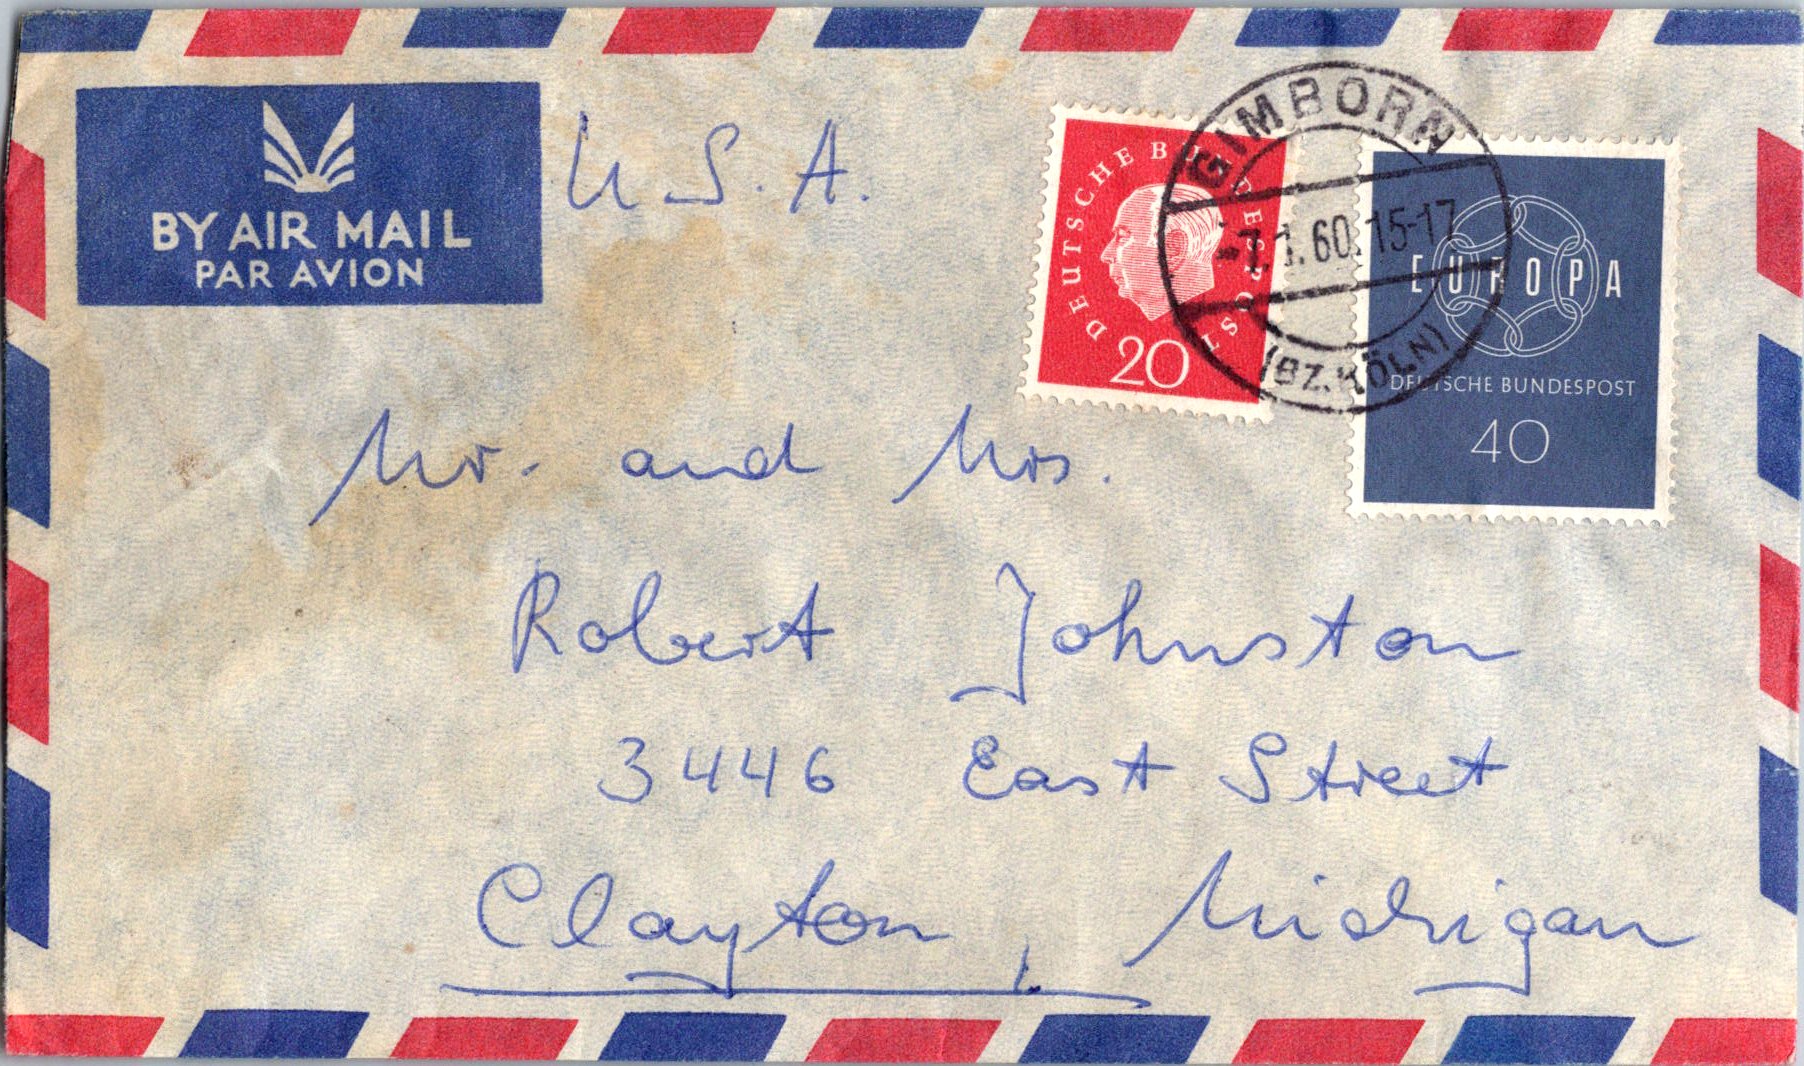 BY AIR MAIL
PAR AVION
U.S.A.
DEUTSCHE BUNDESPOST
20
GIMBORN
-7.1.60.15-17
(BZ. KÖLN)
EUROPA
DEUTSCHE BUNDESPOST
40
Mr. and Mrs.
Robert Johnston
3446 East Street
Clayton, Michigan